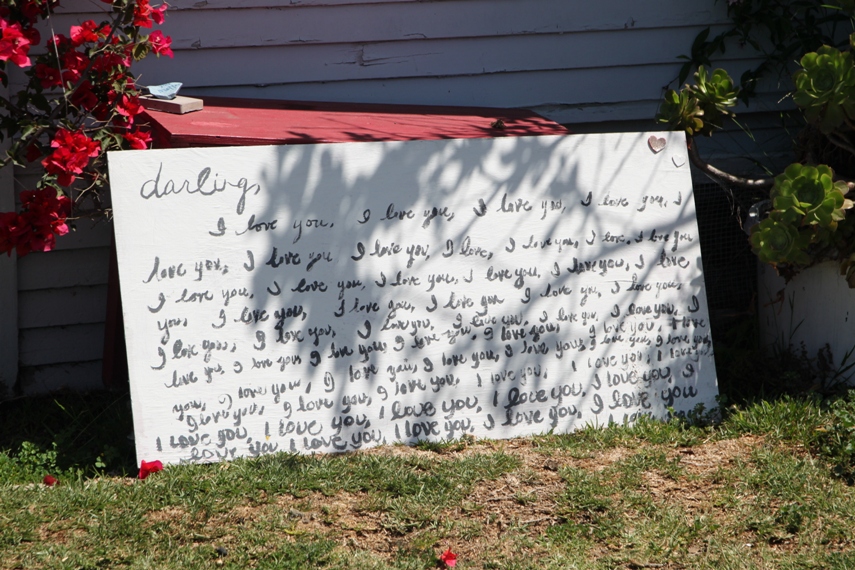 darling,
I love you, I love you, I love you, I love you, I
love you, I love you I love you, I love, I love you, I love, I love you
I love you, I love you, I love you, I love you, I love you, I love
you, I love you, I love you, I love you I love you, I love you,
I love you, I love you, I love you, I love you, I love you, I love you,
love you, I love you I love you, I love you, I love you, I love you, I love
you, I love you, I love you, I love you, I love you, I love you, I love you
I love you, I love you, I love you, I love you, I love you, I love you
I love you, I love you, I love you, I love you, I love you, I
love you, I love you, I love you, I love you,